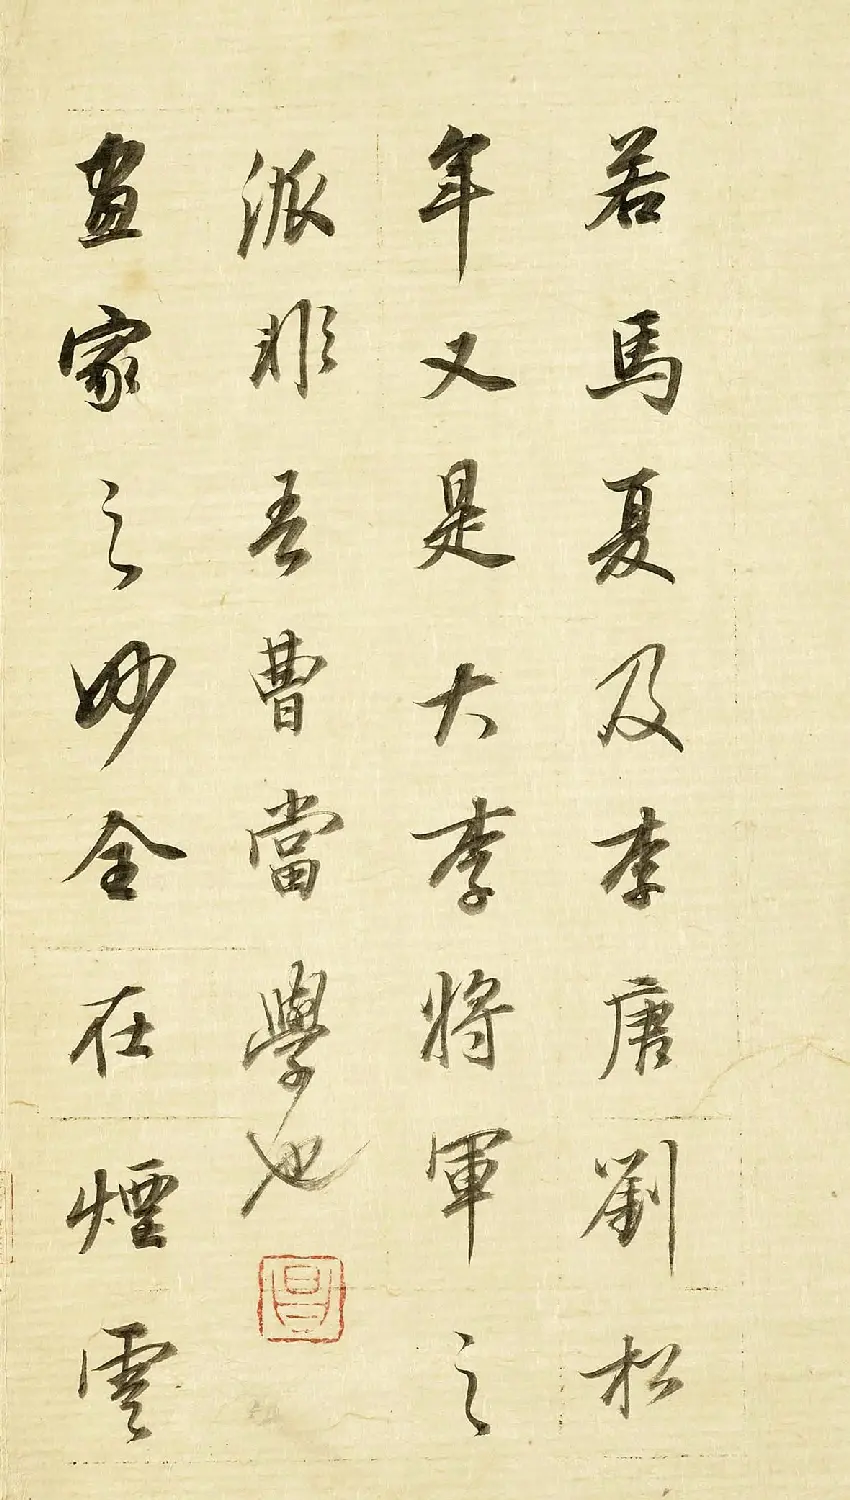 若馬夏及李唐劉松
年又是大李將軍之
派非吾曹當學也
畫家之妙全在煙雲